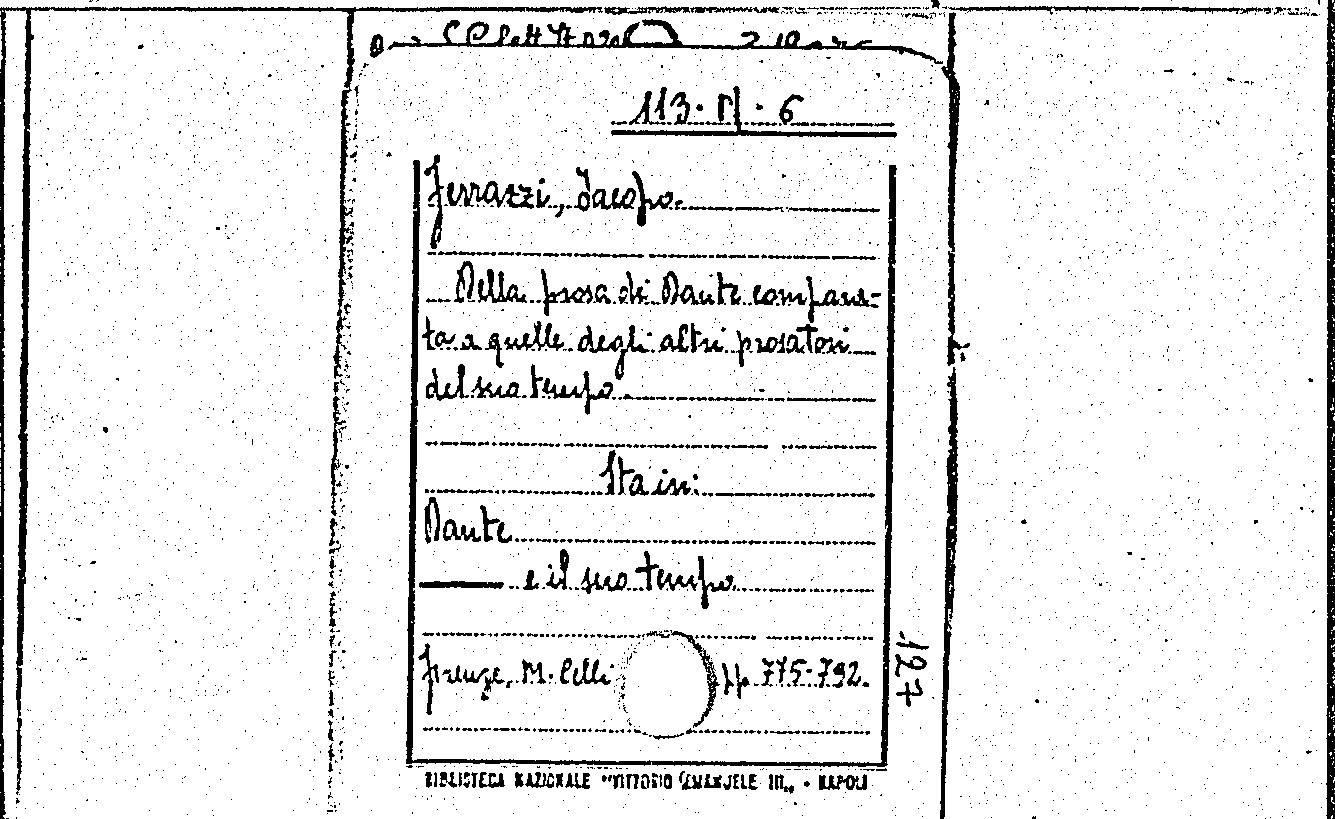 113. N. 6
Ferrazzi, Jacopo.
Della prosa di Dante compara=
ta a quelle degli altri prosatori
del suo tempo.
Sta in:
Dante
—— e il suo tempo
Firenze, M. Cellini pp. 775-792.
127
BIBLIOTECA NAZIONALE "VITTORIO EMANUELE III„ - NAPOLI